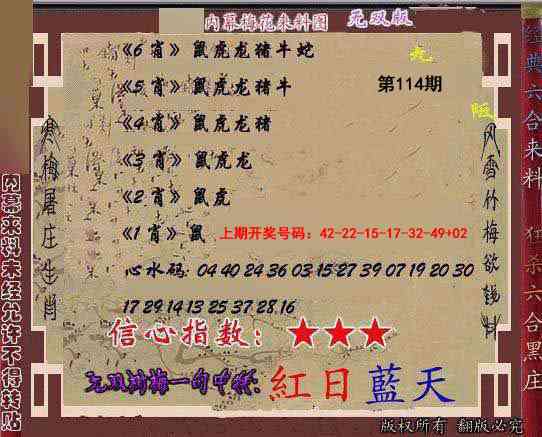 内幕梅花来料图 无双版
《6 肖》 鼠虎龙猪牛蛇
《5 肖》 鼠虎龙猪牛 第114期
《4 肖》 鼠虎龙猪
《3 肖》 鼠虎龙
《2 肖》 鼠虎
《1 肖》 鼠 上期开奖号码：42-22-15-17-32-49+02
心水码: 04 40 24 36 03 15 27 39 07 19 20 30
17 29 14 13 25 37 28 16
信心指数：★★★
无双 梅一句中特: 紅日藍天
寒梅屠庄生肖
风雪竹梅欲 料
内幕来料未经允许不得转贴
经典六合来料
狂杀六合黑庄
版权所有 翻版必究